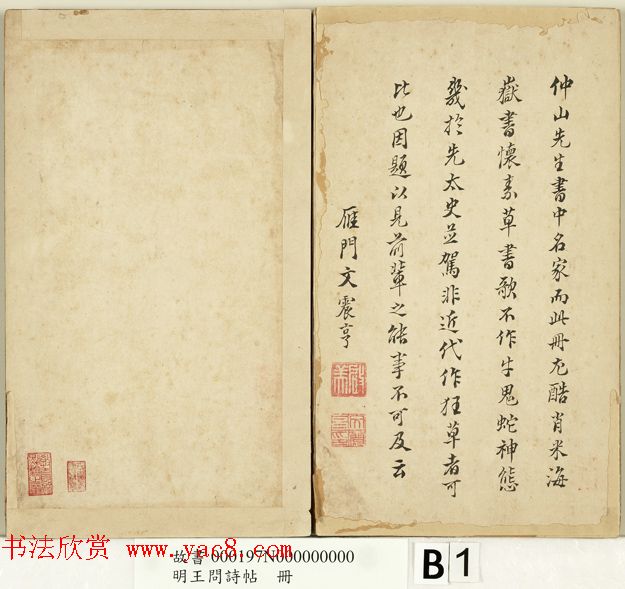 仲山先生書中名家而此冊尤酷肖米海
嶽書懷素草書歌不作牛鬼蛇神態
幾於先太史並駕非近代作狂草者可
比也因題以見前輩之能事不可及云
雁門文震亨
书法欣赏 www.yac8.com
故書000197N000000000
明王問詩帖 冊
B 1